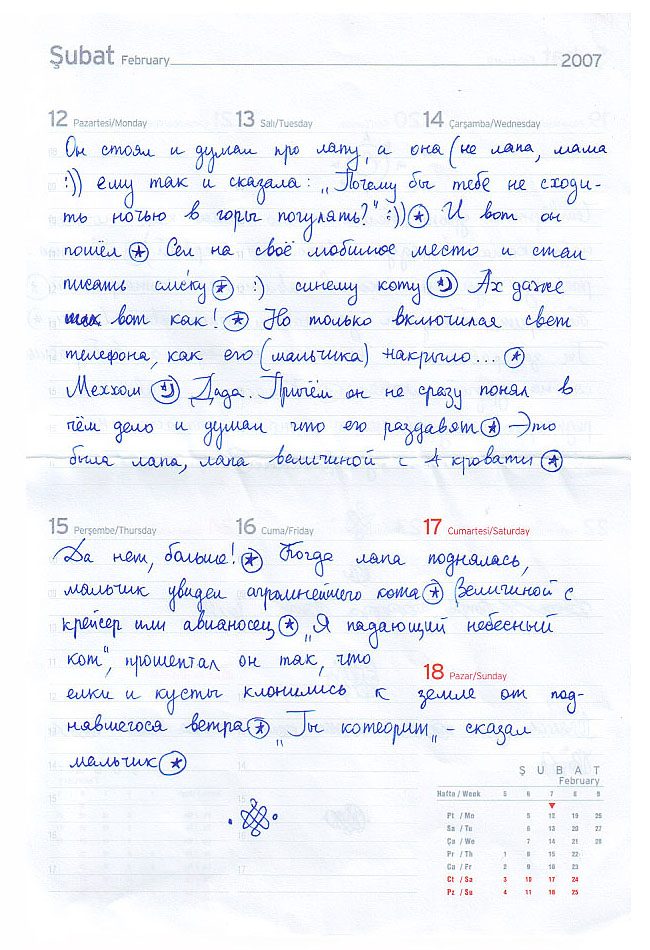 Şubat February 2007
12 Pazartesi/Monday 13 Salı/Tuesday 14 Çarşamba/Wednesday
Он стоял и думал про лапу, а она (не лапа, мама
:)) ему так и сказала: „Почему бы тебе не сходи-
ть ночью в горы погулять?" :)) И вот он
пошёл Сел на своё любимое место и стал
писать смску :) синему коту Ах даже
вот как! Но только включился свет
телефона, как его (мальчика) накрыло...
Меххом Дада. Причём он не сразу понял в
чём дело и думал что его раздавят Это
была лапа, лапа величиной с 4 кровати
15 Perşembe/Thursday 16 Cuma/Friday 17 Cumartesi/Saturday
Да нет, больше! Когда лапа поднялась,
мальчик увидел агромнейшего кота Величиной с
крейсер или авианосец „Я падающий небесный
кот", прошептал он так, что
18 Pazar/Sunday
елки и кусты клонились к земле от под-
нявшегося ветра „Ты котеорит„ - сказал
мальчик
Ş U B A T
February
Hafta / Week 5 6 7 8 9
Pt / Mo 5 12 19 26
Sa / Tu 6 13 20 27
Ça / We 7 14 21 28
Pr / Th 1 8 15 22
Ca / Fr 2 9 16 23
Ct / Sa 3 10 17 24
Pz / Su 4 11 18 25